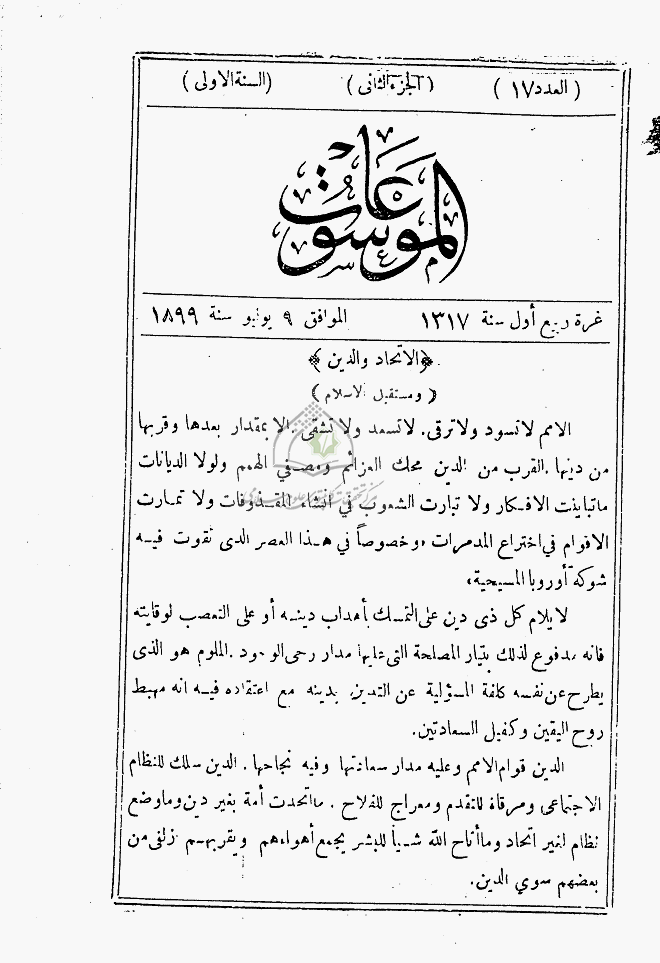 (العدد ١٧) (الجزء الثانى) (السنة الاولى)
الموسوعات
غرة ربيع أول سنة ١٣١٧ الموافق ٩ يونيو سنة ١٨٩٩
﴿الاتحاد والدين﴾
(ومستقبل الاسلام)
الامم لا تسود ولا ترقى. لا تسعد ولا تشقى. الا بمقدار بعدها وقربها
من دينها. القرب من الدين محك العزائم ومصفي الهمم ولولا الديانات
ما تباينت الافكار ولا تبارت الشعوب في انشاء المقذوفات ولا تمارت
الاقوام في اختراع المدمرات وخصوصاً في هذا العصر الذى تقوت فيه
شوكة أوروبا المسيحية،
لا يلام كل ذى دين على التمسك بأهداب دينه أو على التعصب لوقايته
فانه مدفوع لذلك بتيار المصلحة التى عليها مدار رحى الوجود. الملوم هو الذى
يطرح عن نفسه كلفة المسؤلية عن التدين بدينه مع اعتقاده فيه انه مهبط
روح اليقين وكفيل السعادتين.
الدين قوام الامم وعليه مدار سعادتها وفيه نجاحها. الدين سلك للنظام
الاجتماعى ومرقاة للتقدم ومعراج للفلاح. ما اتحدت أمة بغير دين وما وضع
نظام لغير اتحاد وما أتاح الله شيأ للبشر يجمع أهواءهم ويقربهم زلفى من
بعضهم سوي الدين.